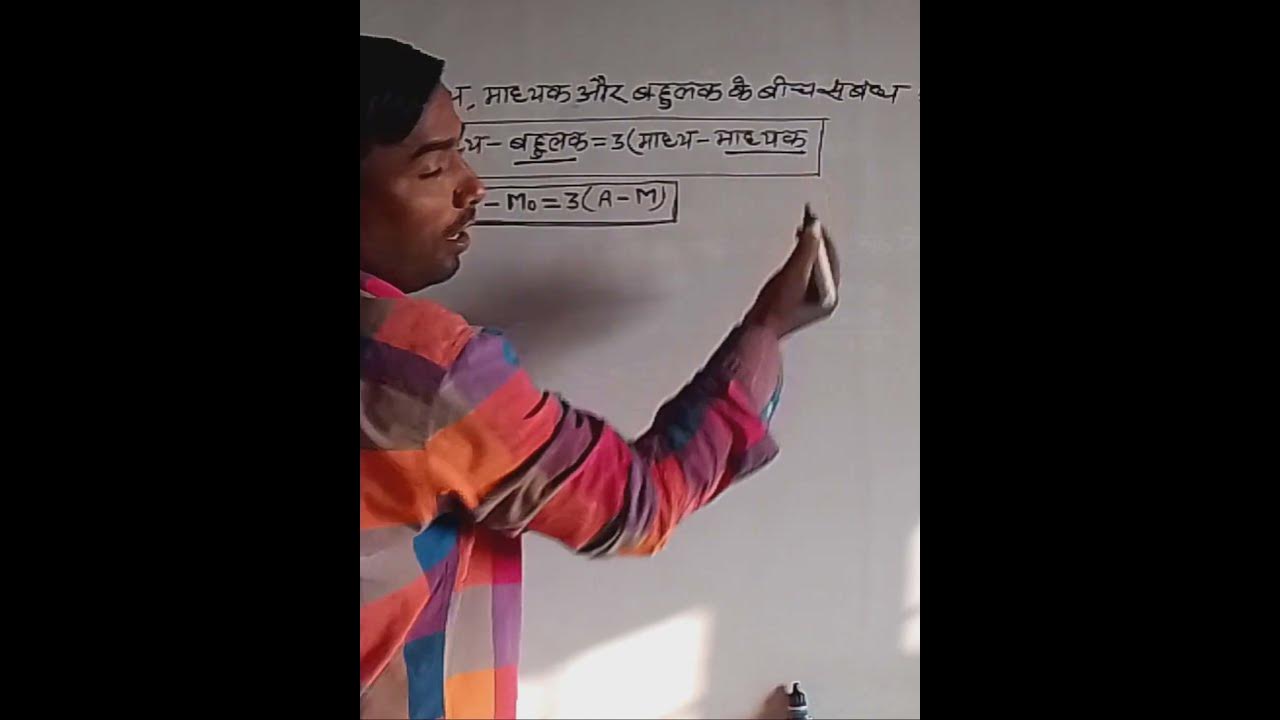 माध्यक और बहुलक के बीच सबंध
- बहुलक = 3(माध्य - माध्यक
- Mo = 3(A - M)